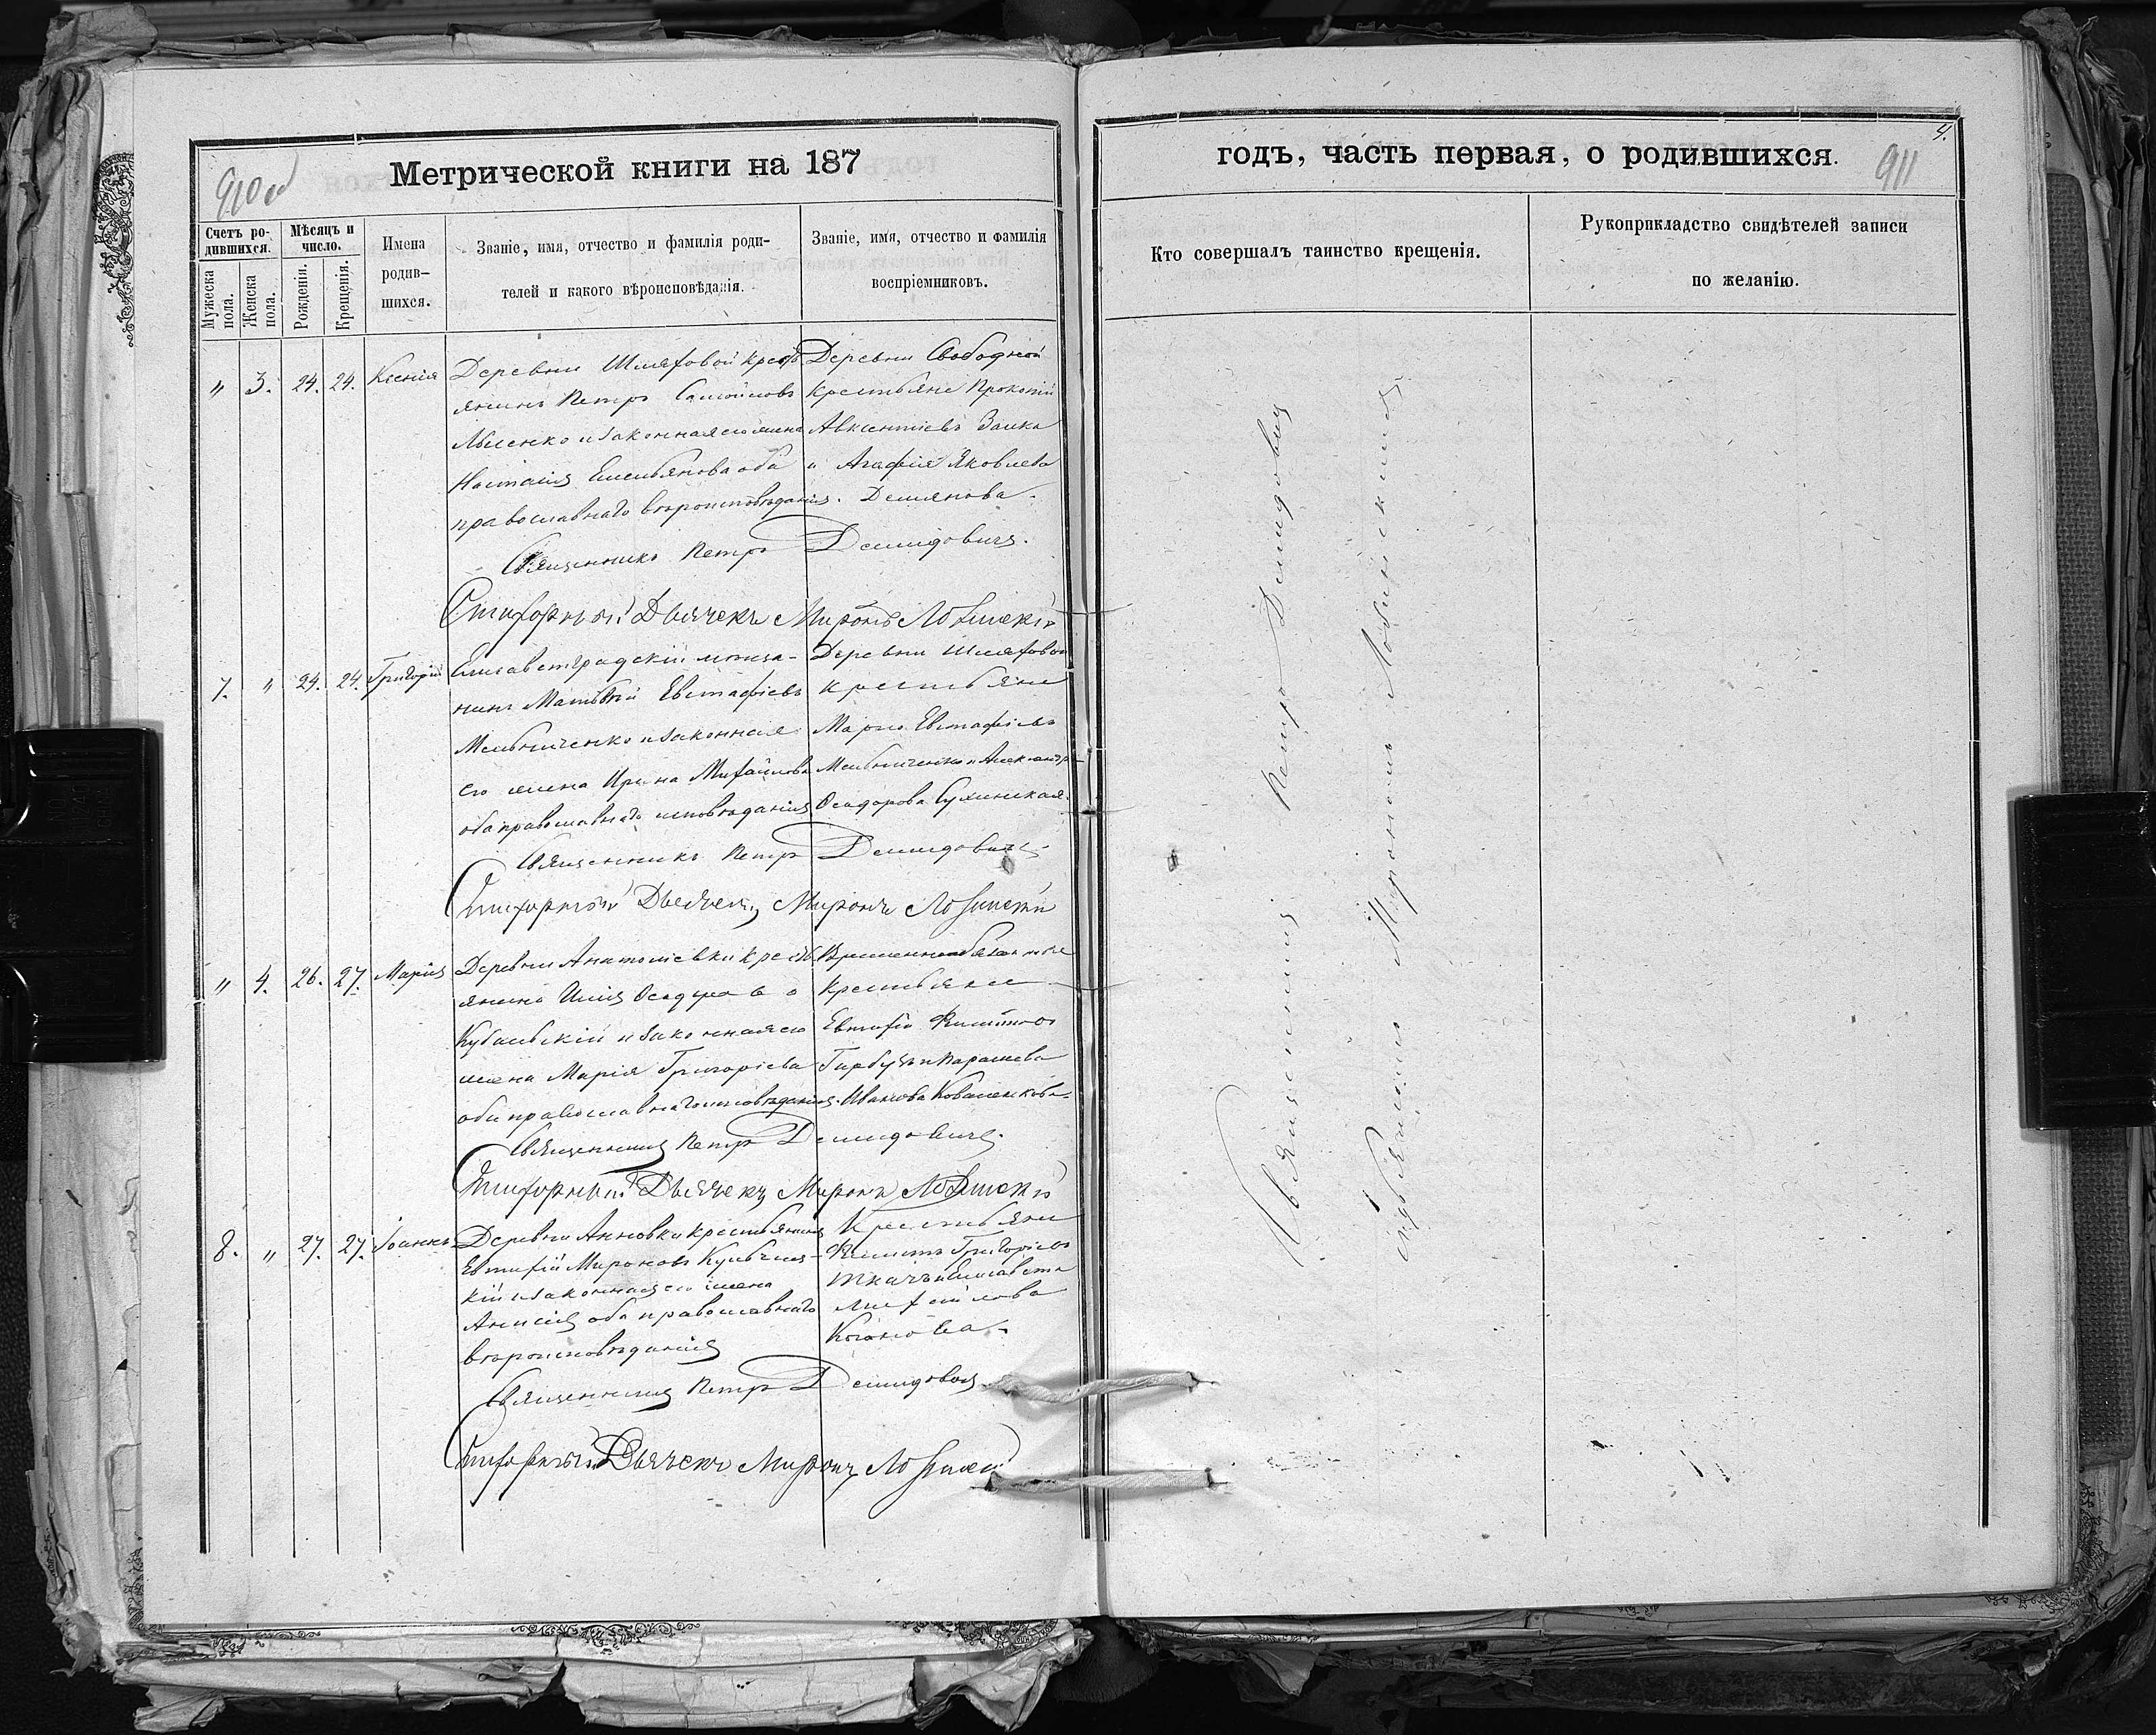 910об
Метрической книги на 187
Счетъ ро-
дившихся.
Мѣсяцъ и
число.
Мужеска
пола.
Женска
пола.
Рожденія.
Крещенія.
Имена
родив-
шихся.
Званіе, имя, отчество и фамилія роди-
телей и какого вѣроисповѣданія.
Званіе, имя, отчество и фамилія
воспріемниковъ.
" 3. 24. 24. Ксенія
Деревни Шляховой кресть
янинъ Петръ Самойловъ
и законная его жена
Емельянова оба
православнаго вѣроисповѣданія.
Деревни Свободной
крестьяне Прокопій
Авксентіевъ Заика
и Агафія Яковлева
Демянова.
Священникъ Петръ Демидовичъ.
Стихорный Дьячекъ Миронъ Лобинскій
7. " 24. 24. Григорій
Елисаветградскій мѣща-
нинъ Матвѣй Евстафіевъ
Мельниченко и законная
его жена Ирина Михайлова
оба православнаго исповѣданія
Деревни Шляховой
крестьяне
Марко Евстафіевъ
Мельниченко и Александра
Ѳеодорова
Священникъ Петръ Демидовичъ.
Стихорный Дьячекъ Миронъ Лобинскій
" 4. 26. 27. Марія
Деревни Анатоліевки кресть
янинъ Илія Ѳеодоровъ
Кубальскій и законная его
жена Марія Григоріева
оба православнаго исповѣданія.
Временнообязанные
крестьяне
Евтихій Филиповъ
Гарбузъ и Параскева
Иванова Коваленкова.
Священникъ Петръ Демидовичъ.
Стихорный Дьячекъ Миронъ Лобинскій
8. " 27. 27. Іоаннъ
Деревни Анновки крестьянинъ
Евтихій Мироновъ Кульчиц-
кій и законная его жена
Анисія оба православнаго
вѣроисповѣданія
Крестьяне
Филипъ Григоріевъ
Ткачъ и Елисавета
Михайлова
Священникъ Петръ Демидовичъ
Стихорный Дьячекъ Миронъ Лобинскій
4.
911
годъ, часть первая, о родившихся.
Кто совершалъ таинство крещенія.
Рукоприкладство свидѣтелей записи
по желанію.
Священникъ Петръ Демидовичъ
съ Дьячкомъ Мирономъ Лобинскимъ